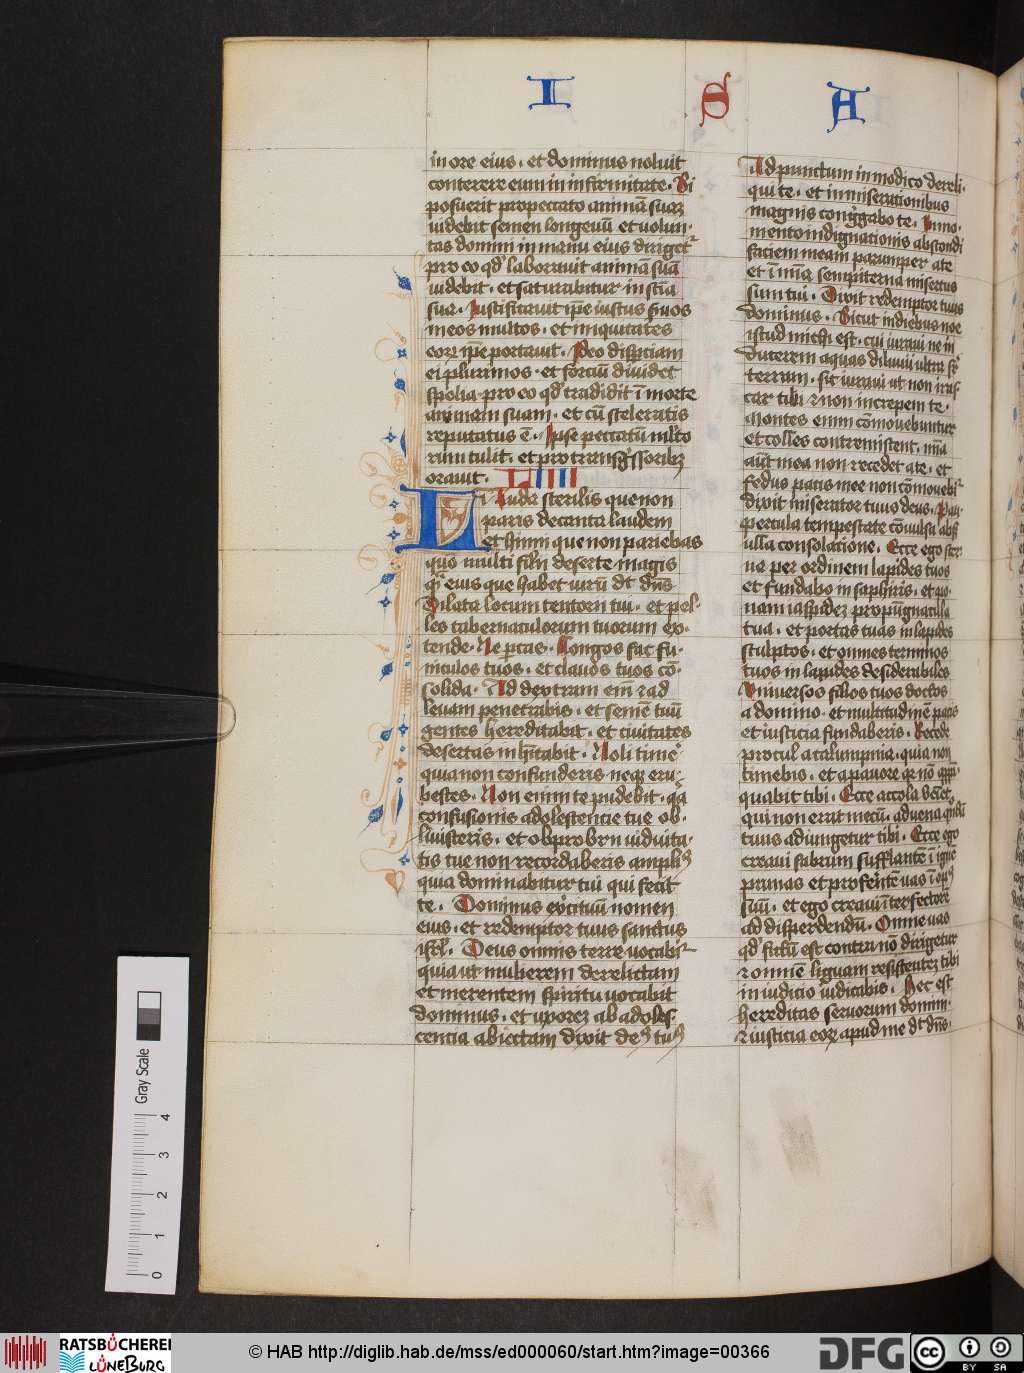 I S A
in ore eius · et dominus noluit
conterere eum in infirmitate · Si
posuerit pro peccato animā suaꝫ
videbit semen longeuū et volun-
tas domini in manu eius dirigetͬ
pro eo qd' laborauit animā suā
videbit · et saturabitur in sciā
sua · Iustificauit ip̄e iustus seruos
meos multos · et iniquitates
eorꝫ ip̄e portauit · Ideo disptiam
ei plurimos · et forciū diuidet
spolia · pro eo qd' tradidit ī morte
animam suam · et cū sceleratis
reputatus ē · Ipse peccatū mlto
rum tulit · et pro transgressoribꝫ
orauit · LIIII
Lauda sterilis que non
paris decanta laudem
et hinni que non pariebas
quō multi filij deserte magis
qͣ eius que habet virū dt dn̄s
Dilata locum tentorij tui · et pel-
les tabernaculorum tuorum ex-
tende · Ne ꝑcas · Longos fac fu-
niculos tuos · et clauos tuos cō-
solida · Ad dextram em̄ ꝛ ad
leuam penetrabis · et semē tuū
gentes hereditabit · et ciuitates
desertas inhītabit · Noli timeͤ
quia non confunderis neqꝫ eru-
besces · Non enim te pudebit · qͣa
confusionis adolescentie tue ob-
liuisceris · et obprobrij viduita-
tis tue non recordaberis ampliꝰ
quia dominabitur tui qui fecit
te · Dominus exͨituū nomen
eius · et redemptor tuus sanctus
isrl̄ · Deus omnis terre vocabiͬ
quia ut mulierem derelictam
et merentem spiritu vocabit
dominus · et uxoreꝫ ab adoles-
centia abiectam dixit deꝰ tuꝰ
Ad punctum in modico dereli-
qui te · et in miserationibus
magnis congͤgabo te · In mo-
mento indignationis abscondi
faciem meam parumper a te
et ī mīa sempiterna misertus
sum tui · Dixit redemptor tuus
dominus · Sicut in diebus noe
istud michi est · cui iuraui ne in
ducerem aquas diluuij ultra suͥ
terram · sic iuraui ut non iras-
car tibi ꝛ non increpem te ·
Montes enim cōmouebuntur
et colles contremiscent · mīa
aūt mea non recedet a te · et
fedus pacis mee non cōmouebiͬ
dixit miserator tuus deus · Pau-
percula tempestate cōuulsa absꝫ
ulla consolatione · Ecce ego ster
na per ordinem lapides tuos
et fundabo in saphiris · et po-
nam iaspideꝫ propugnacula
tua · et portas tuas in lapides
sculptos · et omnes terminos
tuos in lapides desiderabiles
Vniuersos filios tuos doctos
a domino · et multitudinē pacis
et in iusticia fundaberis · Recede
procul a calumpnia · quia non
timebis · et a pauore qꝛ nō appͦpi-
quabit tibi · Ecce accola veniet
qui non erat mecū · aduena qͦndā
tuus adiungetur tibi · Ecce ego
creaui fabrum sufflantē ī igne
prunas et proferentē vas ī opꝰ
suū · et ego creaui īterfectorē
ad disperdendū · Omne vas
qd' fictū est contra te nō dirigetur
ꝛ omnē liguam resistenteꝫ tibi
in iudicio iudicabis · Hec est
hereditas seruorum domini ·
ꝛ iusticia eorꝫ apud me dt dn̄s ·
Gray Scale
4
3
2
1
0
RATSBÜCHEREI
LÜNEBURG
© HAB http://diglib.hab.de/mss/ed000060/start.htm?image=00366
DFG
cc BY SA